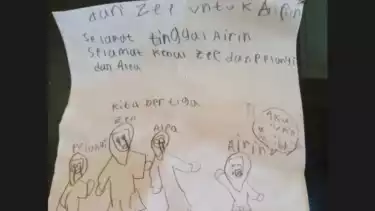 dari zee untuk Airin
Selamat tinggal Airin
Selamat kenal zee dan pelangi
dan Alea
kita bertiga
zee
pelangi
Alea
Airin
Aku